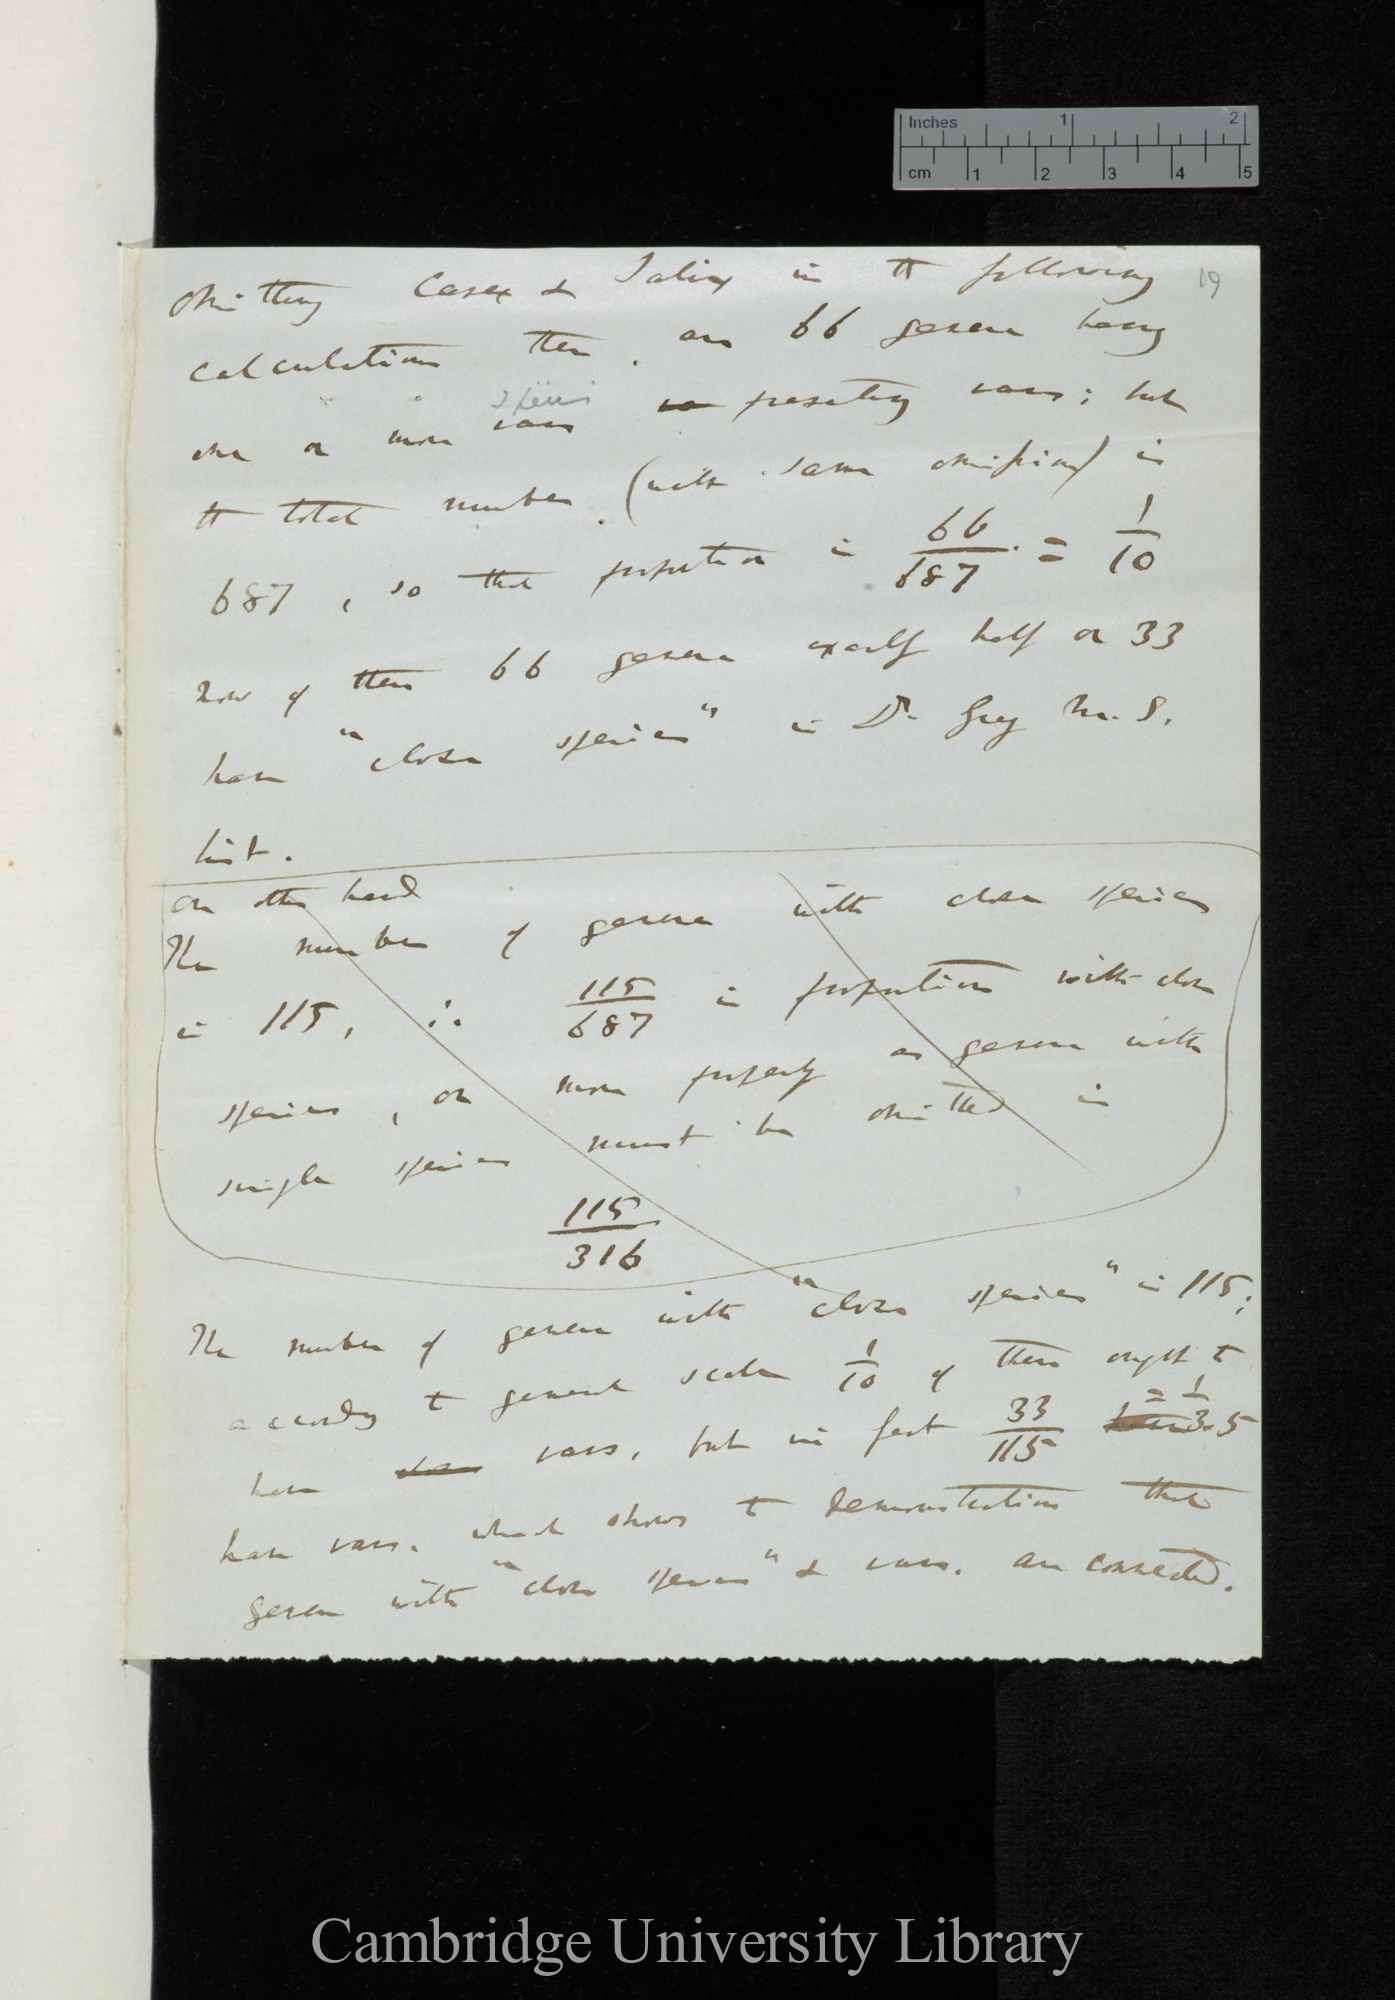 Inches 1 2
cm 1 2 3 4 5
19
Omitting Carex & Salix in the following
calculations there are 66 genera having
species
one or more vars presenting vars; but
the total number (with same omission) is
687, so that proportion is 66/687 = 1/10
Now of these 66 genera exactly half or 33
have "close species" in Dr. Gray M.S.
list.
On other hand
The number of genera with close species
is 115, ∴ 115/687 is proportion with close
species, or more properly as genera with
single species must be omitted is
115/316
The number of genera with "close species" is 115;
according to general scale 1/10 of these ought to
have close vars, but in fact 33/115 = 1/3.5
have vars. which shows to demonstration that
genera with "close species" & vars. are connected.
Cambridge University Library